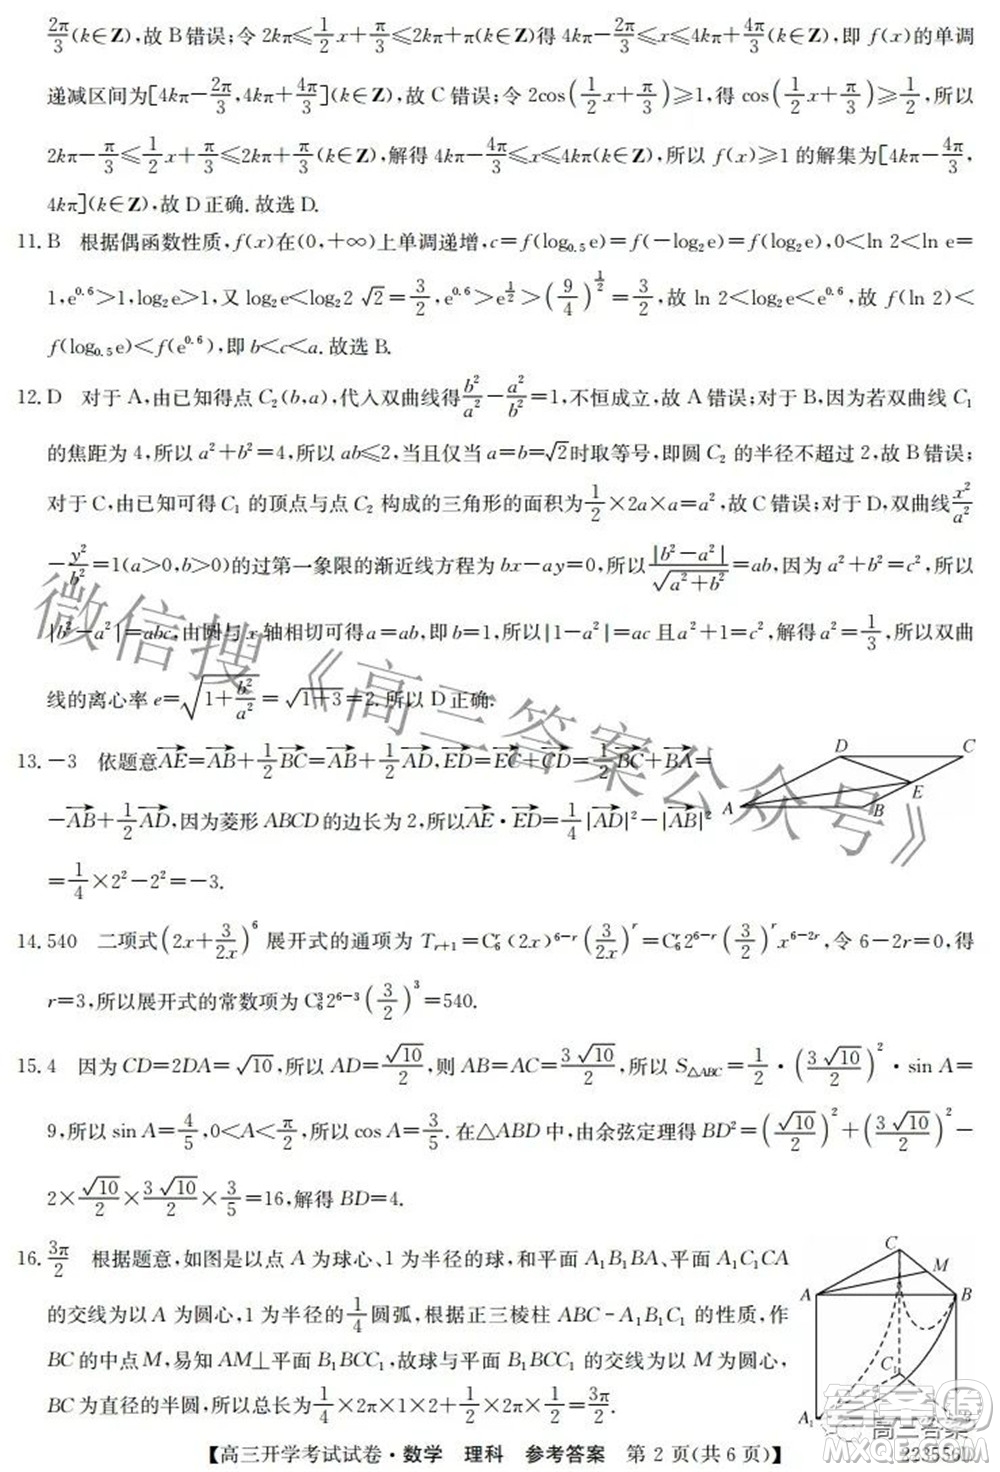 2π/3(k∈Z),故 B 错误;令 2kπ≤1/2x+π/3≤2kπ+π(k∈Z)得 4kπ−2π/3≤x≤4kπ+4π/3(k∈Z),即 f(x)的单调
递减区间为[4kπ−2π/3,4kπ+4π/3](k∈Z),故 C 错误;令 2cos(1/2x+π/3)≥1,得 cos(1/2x+π/3)≥1/2,所以
2kπ−π/3≤1/2x+π/3≤2kπ+π/3(k∈Z),解得 4kπ−4π/3≤x≤4kπ(k∈Z),所以 f(x)≥1 的解集为[4kπ−4π/3,
4kπ](k∈Z),故 D 正确.故选 D.
11. B 根据偶函数性质,f(x)在(0,+∞)上单调递增,c=f(log₀.₅e)=f(−log₂e)=f(log₂e),0<ln 2<ln e=
1,e^0.6>1,log₂e>1,又 log₂e<log₂2√2=3/2,e^0.6>e^(1/2)>(9/4)^(1/2)=3/2,故 ln 2<log₂e<e^0.6,故 f(ln 2)<
f(log₀.₅e)<f(e^0.6),即 b<c<a.故选 B.
12. D 对于 A,由已知得点 C₂(b,a),代入双曲线得b²/a²−a²/b²=1,不恒成立,故 A 错误;对于 B,因为若双曲线 C₁
的焦距为 4,所以 a²+b²=4,所以 ab≤2,当且仅当 a=b=√2时取等号,即圆 C₂ 的半径不超过 2,故 B 错误;
对于 C,由已知可得 C₁ 的顶点与点 C₂ 构成的三角形的面积为1/2×2a×a=a²,故 C 错误;对于 D,双曲线x²/a²
−y²/b²=1(a>0,b>0)的过第一象限的渐近线方程为 bx−ay=0,所以|b²−a²|/√(a²+b²)=ab,因为 a²+b²=c²,所以
|b²−a²|=abc,由圆与 x 轴相切可得 a=ab,即 b=1,所以|1−a²|=ac 且 a²+1=c²,解得 a²=1/3,所以双曲
线的离心率 e=√(1+b²/a²)=√(1+3)=2.所以 D 正确.
13. −3 依题意AE→=AB→+1/2BC→=AB→+1/2AD→,ED→=EC→+CD→=1/2BC→+BA→=
−AB→+1/2AD→,因为菱形 ABCD 的边长为 2,所以AE→·ED→=1/4|AD→|²−|AB→|²
=1/4×2²−2²=−3.
D C E A B
14. 540 二项式(2x+3/2x)⁶ 展开式的通项为 Tᵣ₊₁=C₆ʳ(2x)^(6−r)(3/2x)^r=C₆ʳ2^(6−r)(3/2)^r x^(6−2r),令 6−2r=0,得
r=3,所以展开式的常数项为 C₆³2^(6−3)(3/2)³=540.
15. 4 因为 CD=2DA=√10,所以 AD=√10/2,则 AB=AC=3√10/2,所以 S△ABC=1/2·(3√10/2)²·sin A=
9,所以 sin A=4/5,0<A<π/2,所以 cos A=3/5.在△ABD 中,由余弦定理得 BD²=(√10/2)²+(3√10/2)²−
2×√10/2×3√10/2×3/5=16,解得 BD=4.
16. 3π/2 根据题意,如图是以点 A 为球心、1 为半径的球,和平面 A₁B₁BA、平面 A₁C₁CA
的交线为以 A 为圆心,1 为半径的1/4圆弧,根据正三棱柱 ABC−A₁B₁C₁ 的性质,作
BC 的中点 M,易知 AM⊥平面 B₁BCC₁,故球与平面 B₁BCC₁ 的交线为以 M 为圆心,
BC 为直径的半圆,所以长为1/4×2π×1×2+1/2×2π×1/2=3π/2.
C M A B C₁ A₁
【高三开学考试试卷·数学 理科 参考答案 第 2 页(共 6 页)】
223556D
微信搜《高三答案公众号》
高三答案